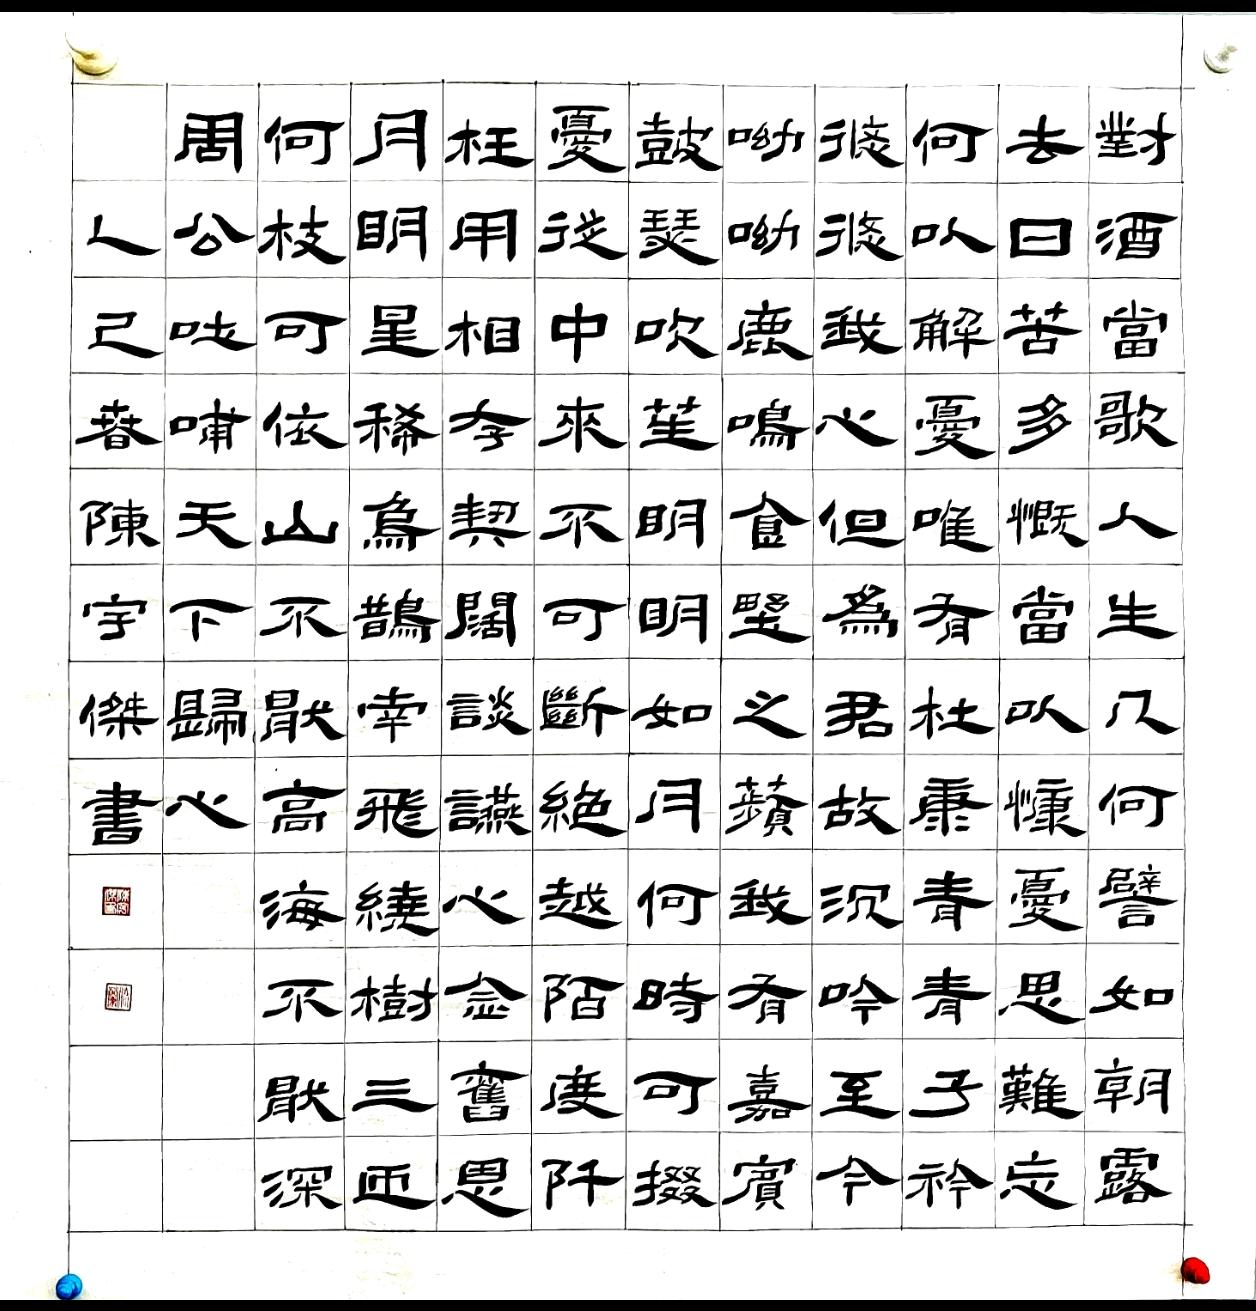 對酒當歌人生几何譬如朝露
去日苦多慨當以慷憂思難忘
何以解憂唯有杜康青青子衿
悠悠我心但爲君故沉吟至今
呦呦鹿鳴食野之蘋我有嘉賓
鼓瑟吹笙明明如月何時可掇
憂從中來不可斷絕越陌度阡
枉用相存契闊談讌心念舊恩
月明星稀烏鵲南飛繞樹三匝
何枝可依山不猒高海不猒深
周公吐哺天下歸心
乙巳春陳宇傑書